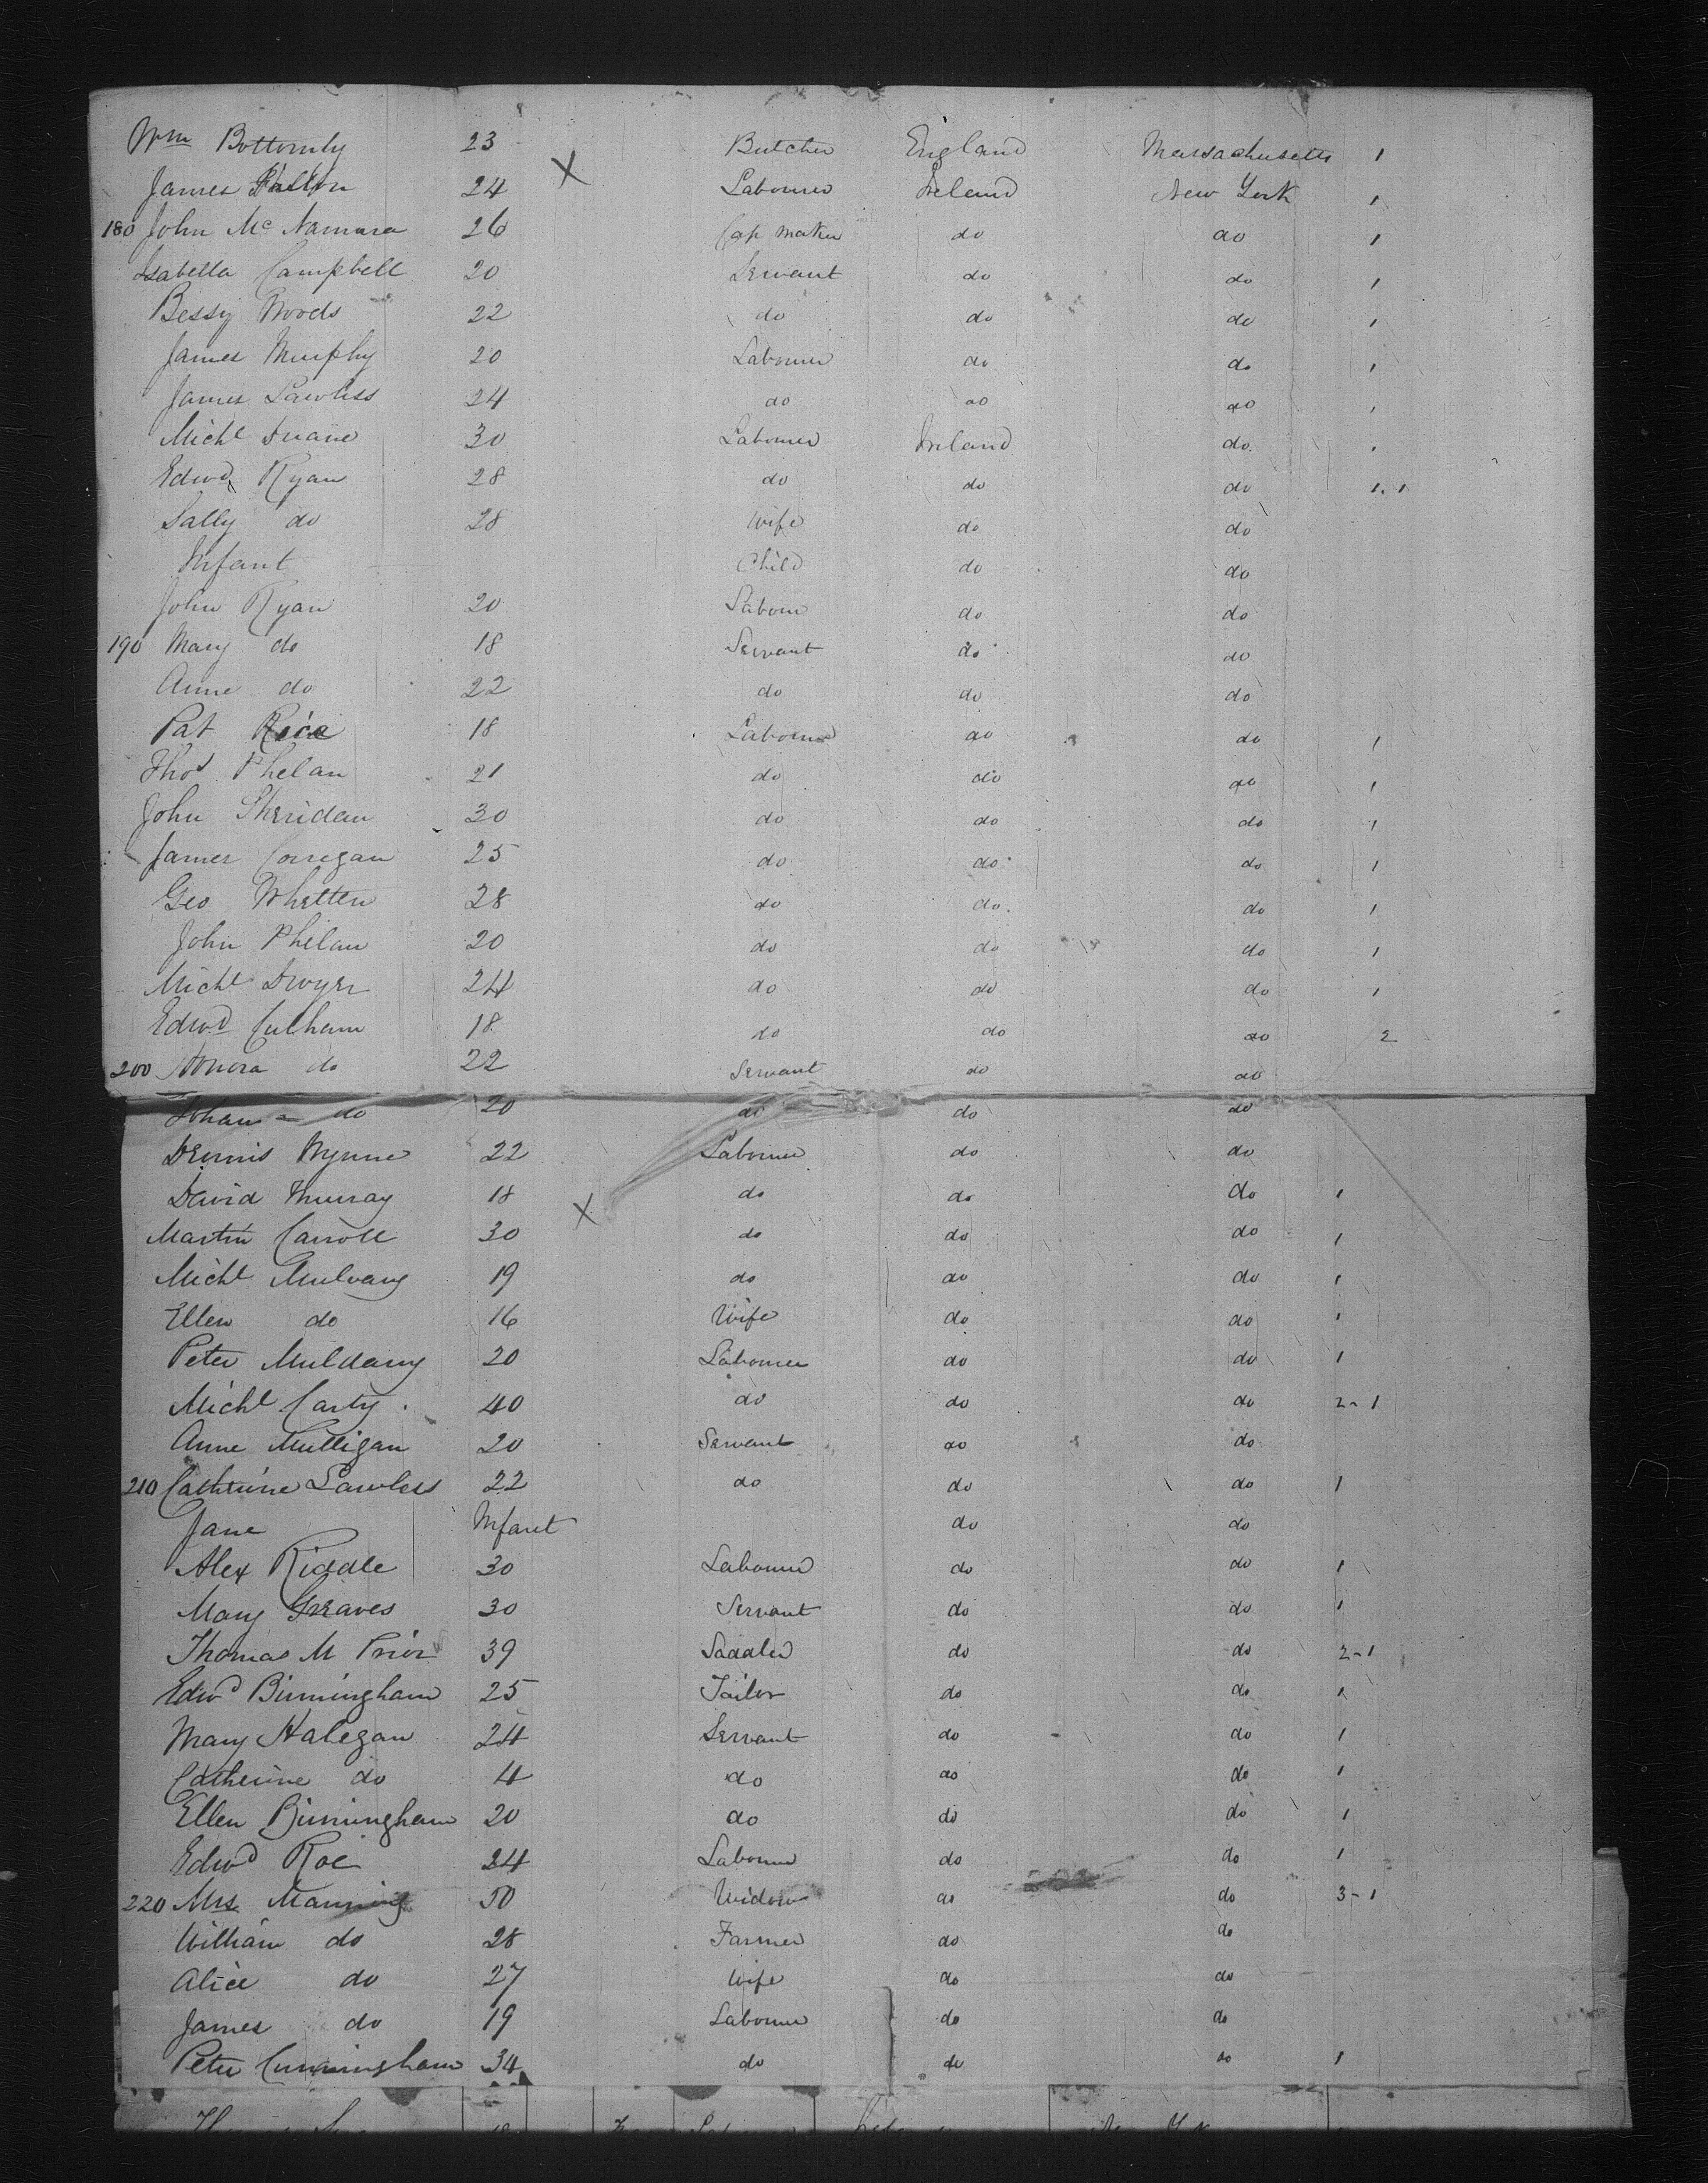 Wm Bottomly 23 Butcher England Massachusetts 1
James 24 X Labourer Ireland New York 1
180 John McNamara 26 Cap maker do do 1
Isabella Campbell 20 Servant do do 1
Bessy Woods 22 do do do 1
James Murphy 20 Labourer do do 1
James Lawless 24 do do do 1
Michl Duane 30 Labourer Ireland do 1
Edwd Ryan 28 do do do 1.1
Sally do 28 Wife do do
Infant Child do do
John Ryan 20 Labour do do
190 Mary do 18 Servant do do
Anne do 22 do do do
Pat Rice 18 Labourer do do 1
Thos Phelan 21 do do do 1
John Sheridan 30 do do do 1
James Corregan 25 do do do 1
Geo Whetten 28 do do do 1
John Phelan 20 do do do 1
Michl Dwyer 24 do do do 1
Edwd Culham 18 do do do 2
200 Honora do 22 Servant do do
do 20 do do do
Dennis Wynne 22 Labourer do do
David Murray 18 X do do do 1
Martin Carroll 30 do do do 1
Michl Mulvany 19 do do do 1
Ellen do 16 Wife do do 1
Peter Muldany 20 Labourer do do 1
Michl Carty 40 do do do 2-1
Anne Mulligan 20 Servant do do
210 Catherine Lawless 22 do do do 1
Jane Infant do do
Alex Riddle 30 Labourer do do 1
Mary Greaves 30 Servant do do 1
Thomas M Prior 39 Saddler do do 2-1
Edwd Birmingham 25 Tailor do do 1
Mary Halegan 24 Servant do do 1
Catherine do 4 do do do 1
Ellen Birmingham 20 do do do 1
Edwd Roe 24 Labourer do do 1
220 Mrs Manning 50 Widow do do 3-1
William do 28 Farmer do do
Alice do 27 Wife do do
James do 19 Labourer do do
Peter Cunningham 34 do do do 1